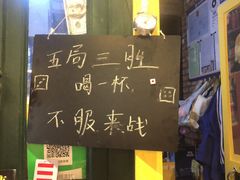 五局三胜
喝一杯
不服来战